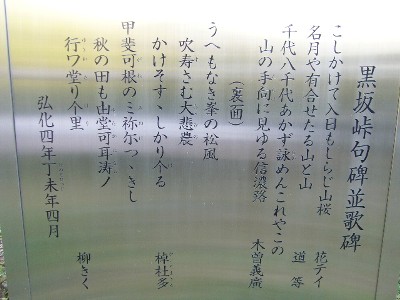 黒坂峠句碑並歌碑
こしかけて入日もしらじ山桜　花テイ
名月や有合せたる山と山　道等
千代八千代あかず詠めんこれやこの
山の手向に見ゆる信濃路　木曽義廣
(裏面)
うへもなき峯の松風
吹寿さむ大悲農
かけそすゞしかり介る　梓杜多
甲斐可根のミ祢尓つゝきし
秋の田も由堂可耳涛ノ
行ワ堂り介里　柳きく
弘化四年丁未年四月